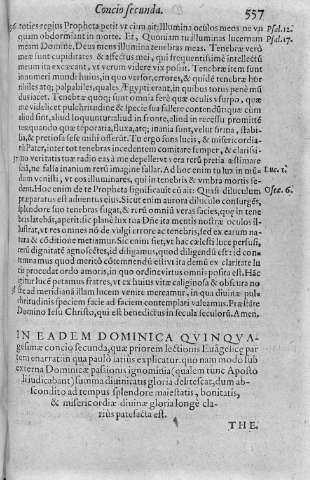 Concio secunda. 557
toties regius Propheta petit vt cùm ait: Illumina oculos meos ne vn Psal.12.
quam obdormiant in morte. Et, Quoniam tu illuminas lucernam Psal.17.
meam Domine, Deus meus illumina tenebras meas. Tenebræ verò
meæ sunt cupiditates & affectus mei, qui frequentissimè intellectũ
meum ita excæcant, vt verum videre vix possit. Tenebræ item sunt
inanes mundi huius, in quo versor, errores, & quidẽ tenebræ hor
ribiles atq; palpabiles, quales Ægypti erant, in quibus torus penè mũ
dus iacet. Tenebræ quoq; sunt omnia ferè quæ oculis vsurpo, quæ
me videlicet pulchritudine & specie sua fallere contendũt
aliud sint, aliud loquuntur aliud in fronte, aliud in recessu promittẽt
bus, & pretiosa sese mihi offerũt. Tu ergo sons lucis, & misericordia
rũ Pater, inter tot tenebras incedentem comitare semper, &
no veritatis tuæ radio eas à me depelle: vt vera rerũ pretia æstimare
sciã, ne falsa inanium rerũ imagine fallar. Ad hoc enim tu lux in mũ Luc.1.
dum venisti, vt eos illuminares, qui in tenebris & vmbra mortis se-
dent. Hoc enim de te Propheta significauit cũ ait: Quasi diluculem Osee.6.
præparatus est aduentus eius. Sicut enim aurora diluculo consurgẽs,
splendore suo tenebras fugat, & rerũ omniũ veras facies, quæ in tene
bris latebãt, aperit: sic planè lux tua Dñe ita mentis nostræ oculos il-
lustrat, vt res omnes nõ de vulgi errore ac tenebris, sed ex earum na-
tura & cõditione metiamur. Sic enim fiet, vt hac cælesti luce perfusi,
diligamus, quod diligendũ est: id con-
temnamus quod morioẽ cõtemnendũ est: vt ita demũ ex claritate lu
cis procedat ordo amoris, in quo ordine virtus omnis posita est. Hãc
igitur lucẽ petamus fratres, vt ex huius vitæ caliginosa & obscura no
cte ad meridianã illam lucem venire mereamur, in qua diuinæ pul-
chritudinis speciem facie ad faciem contemplari valeamus. Præstãre
Domino Iesu Christo, qui est benedictus in secula seculorũ. Amen.
IN EADEM DOMINICA QVINQVA-
gesimæ concio secunda, quæ priorem lectionis Euãgelicæ par
tem enarrat: in qua paulò latius explicatur. quo nam modo sub
externa Dominicæ passionis ignominia (qualem tunc Aposto
li iudicabant) summa diuinitatis gloria delitescat, dum ab-
scondito ad tempus splendore maiestatis, bonitatis,
& misericordiæ diuinæ gloria longè cla-
riùs patefacta est.
THE.